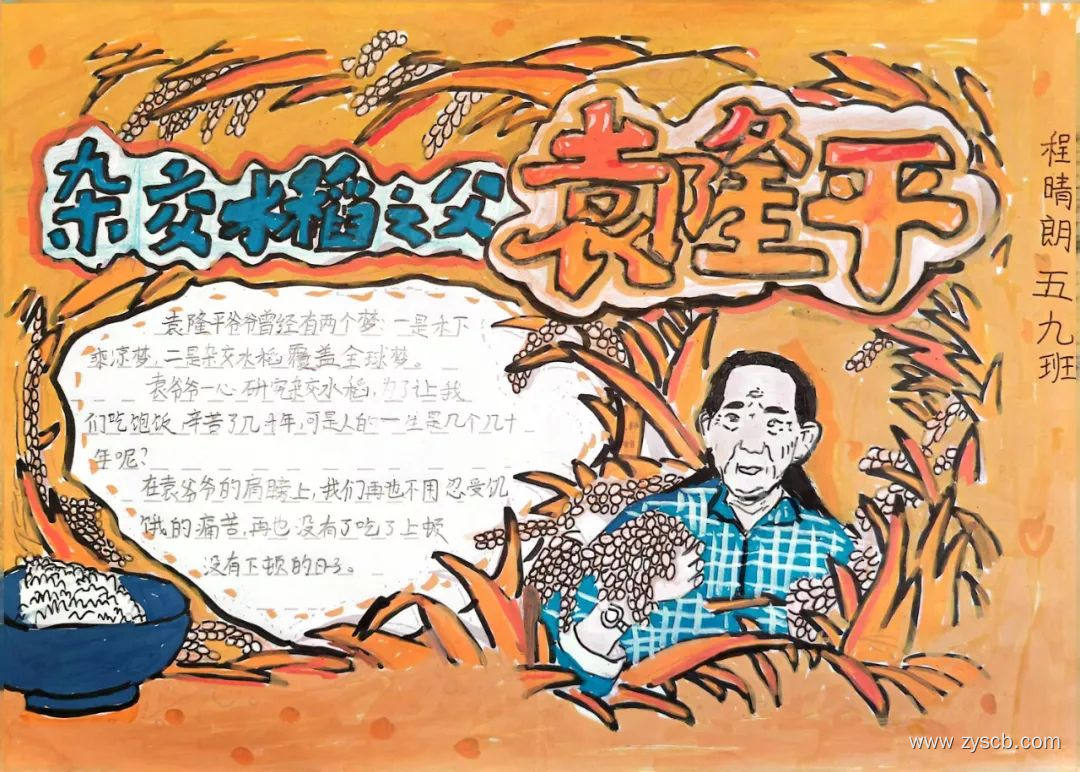 杂交水稻之父
袁隆平
袁隆平爷爷曾经有两个梦：一是禾下
乘凉梦，二是杂交水稻覆盖全球梦。
袁爷爷一心研究杂交水稻，为了让我
们吃饱饭，辛苦了几十年，可是人的一生是几个几十
年呢？
在袁爷爷的肩膀上，我们再也不用忍受饥
饿的痛苦，再也没有了吃了上顿
没有下顿的日子。
程晴朗 五九班
www.zyscb.com